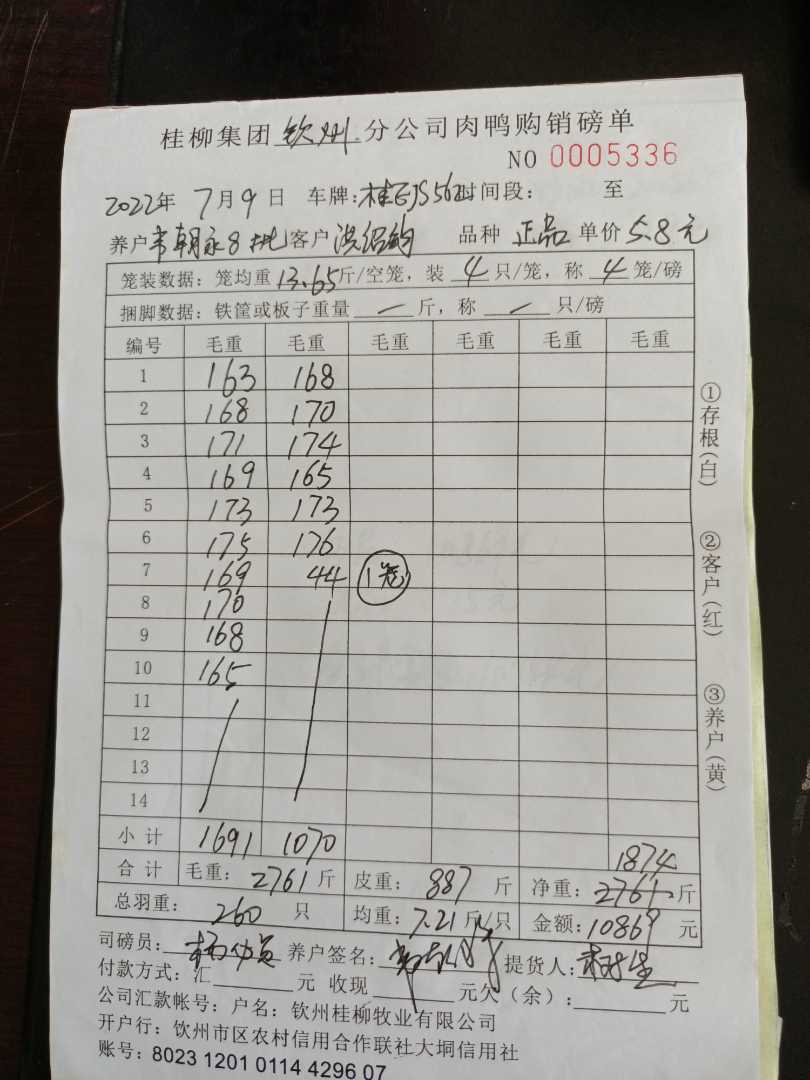 桂柳集团 钦州 分公司肉鸭购销磅单
NO 0005336
2022年 7月9日 车牌: 时间段: 至
养户 韦朝永8批 客户 洪绍钧 品种 正品 单价 5.8元
笼装数据: 笼均重 13.65斤/空笼, 装 4 只/笼, 称 4 笼/磅
捆脚数据: 铁筐或板子重量 — 斤, 称 — 只/磅
编号 毛重 毛重 毛重 毛重 毛重 毛重
1 163 168
2 168 170
3 171 174
4 169 165
5 173 173
6 175 176
7 169 44 1笼
8 170
9 168
10 165
11
12
13
14
小计 1691 1070 1874
合计 毛重: 2761斤 皮重: 887斤 净重: 2761斤
总羽重: 260只 均重: 7.21斤/只 金额: 10869元
司磅员: 养户签名: 提货人:
付款方式: 汇 元 收现 元欠(余): 元
公司汇款帐号: 户名: 钦州桂柳牧业有限公司
开户行: 钦州市区农村信用合作联社大垌信用社
账号: 8023 1201 0114 4296 07
①存根(白)
②客户(红)
③养户(黄)